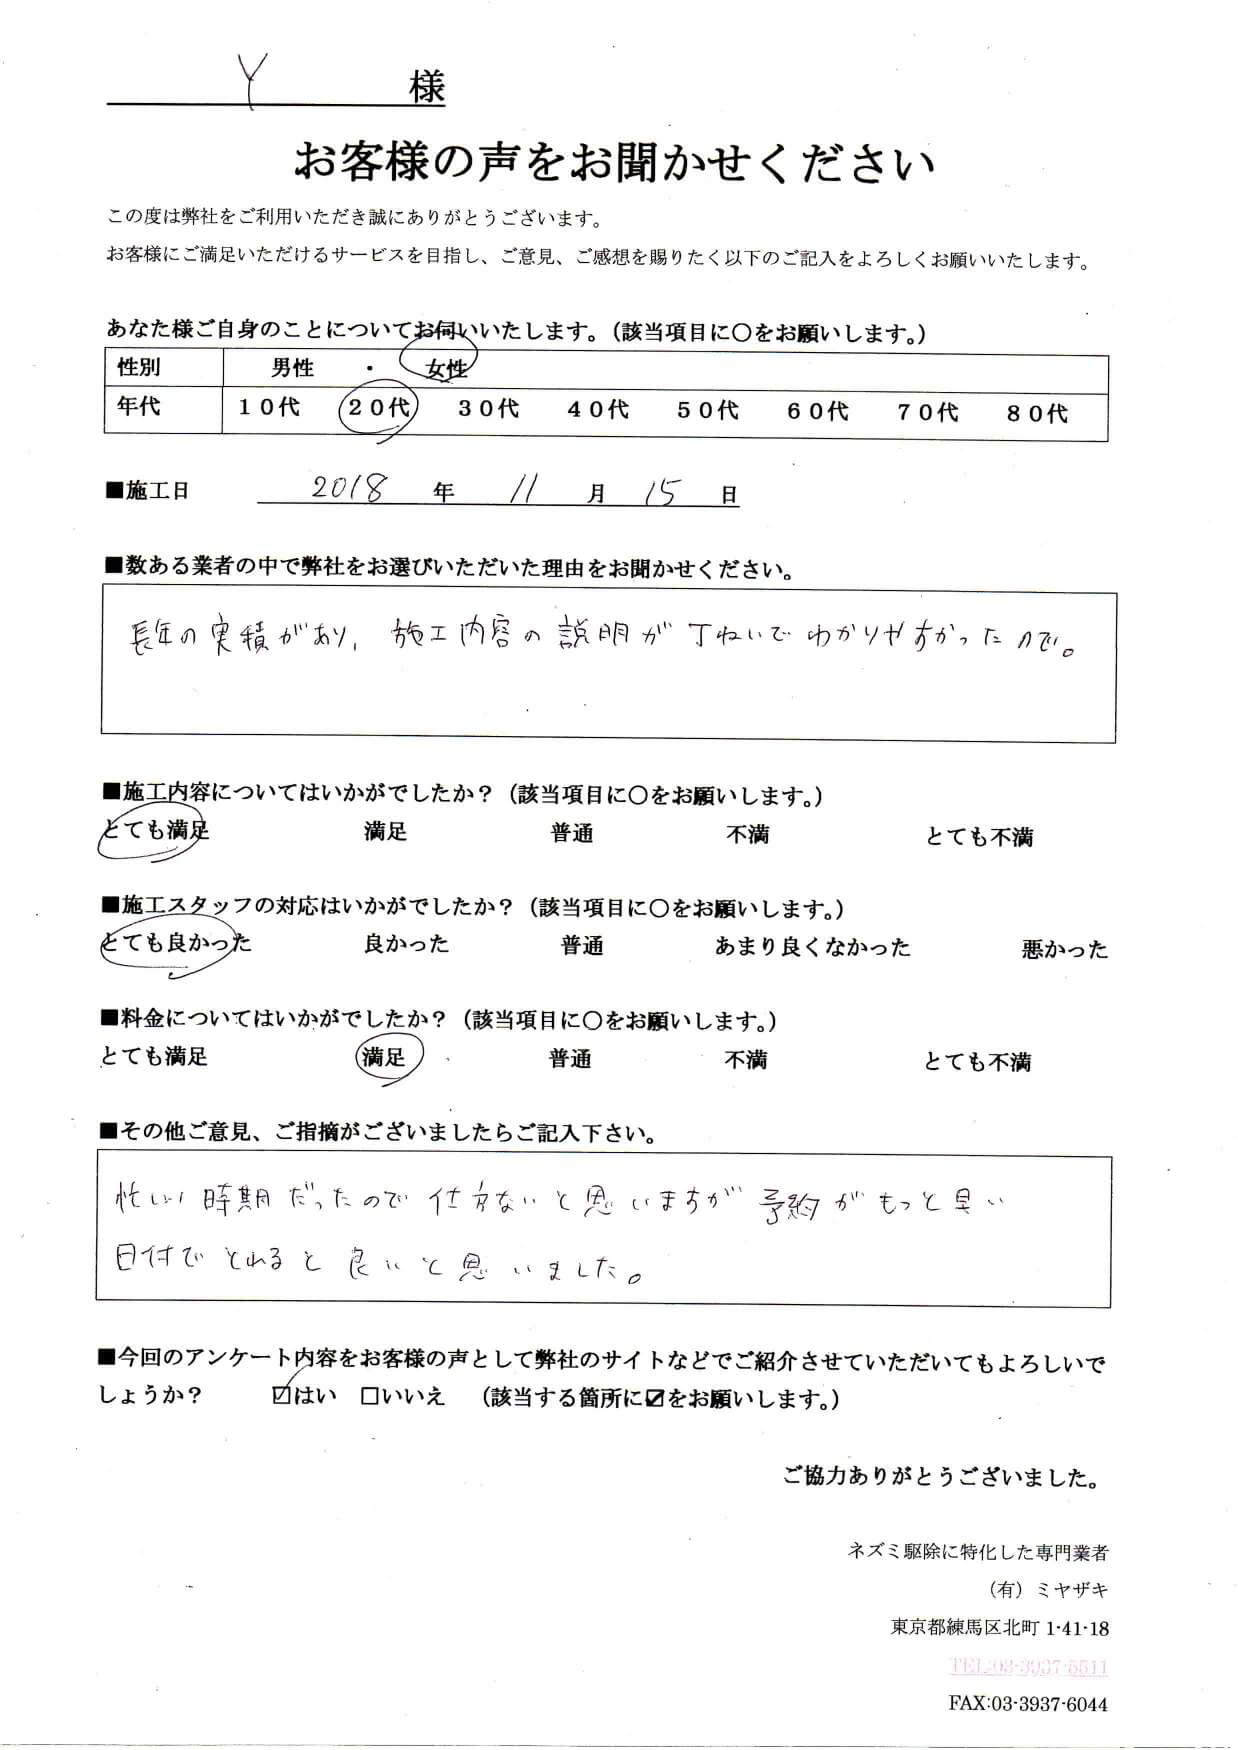 Y 様
お客様の声をお聞かせください
この度は弊社をご利用いただき誠にありがとうございます。
お客様にご満足いただけるサービスを目指し、ご意見、ご感想を賜りたく以下のご記入をよろしくお願いいたします。
あなた様ご自身のことについてお伺いいたします。（該当項目に〇をお願いします。）
性別 男性 ・ 女性
年代 10代 20代 30代 40代 50代 60代 70代 80代
■施工日 2018 年 11 月 15 日
■数ある業者の中で弊社をお選びいただいた理由をお聞かせください。
長年の実積があり、施工内容の説明が丁ねいでわかりやすかったので。
■施工内容についてはいかがでしたか？（該当項目に〇をお願いします。）
とても満足 満足 普通 不満 とても不満
■施工スタッフの対応はいかがでしたか？（該当項目に〇をお願いします。）
とても良かった 良かった 普通 あまり良くなかった 悪かった
■料金についてはいかがでしたか？（該当項目に〇をお願いします。）
とても満足 満足 普通 不満 とても不満
■その他ご意見、ご指摘がございましたらご記入下さい。
忙しい時期だったので仕方ないと思いますが予約がもっと早い
日付でとれると良いと思いました。
■今回のアンケート内容をお客様の声として弊社のサイトなどでご紹介させていただいてもよろしいで
しょうか？ ☑はい □いいえ （該当する箇所に☑をお願いします。）
ご協力ありがとうございました。
ネズミ駆除に特化した専門業者
（有）ミヤザキ
東京都練馬区北町 1-41-18
TEL:03-3937-5511
FAX:03-3937-6044